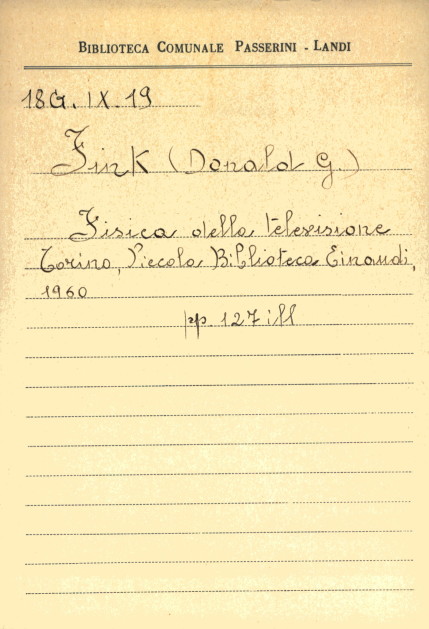 BIBLIOTECA COMUNALE PASSERINI - LANDI
18G. IX. 19
Fink (Donald G.)
Fisica della televisione
Torino, Piccola Biblioteca Einaudi,
1960
pp. 127 ill